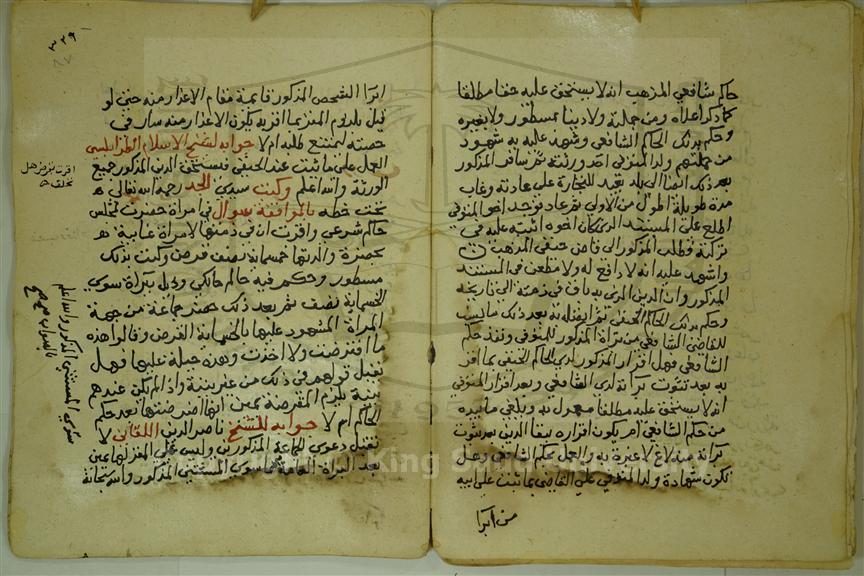 حاكم شافعي المذهب انه لا يستحق عليه حقا مطلقا
كما ذكر اعلاه ومن جملته ولا دينا بمسطور ولا بغيره
وحكم بذلك الحاكم الشافعي وشهد عليه به شهود
من جملتهم ولد المتوفى احد ورثته ثم سافر المذكور
بعد ذلك ايضا الى بلد بعيد للتجارة على عادته وغاب
مدة طويلة اطول من الاولى ثم عاد فوجد اخو المتوفي
اطلع على المستند الذي كان اخوه اثبته عليه في
تركته وطلب المذكور الى قاض حنفي المذهب
واشهد عليه انه لا رافع له ولا مطعن في المستند
المذكور وان الدين المدعى به باق في ذمته الى تاريخه
وحكم بذلك الحاكم الحنفي ثم ان بعد ذلك ما ثبت
للقاضي الشافعي من براة المذكور للمتوفى ونفذ حكم
الشافعي فهل اقرار المذكور لدى الحاكم الحنفي بما اقر
به بعد ثبوت براته لدى الشافعي وبعد اقرار المتوفي
انه لا يستحق عليه مطلقا معمول به ويلغي ما بيده
من حكم الشافعي ام يكون اقراره ببقا الدين بعد ثبوت
براته منه لاغ لا عبرة به والعمل بحكم الشافعي وهل
تكون شهادة ولد المتوفي على القاضي بما ثبت على ابيه
من ابرا
٣٣٩
ابرا الشخص المذكور قايمة مقام الاعذار منه حتى لو
قيل بلزوم المتر بما اقر به يكون الاعذار منه سار في
حصته ليمتنع طلبه ام لا جوابه لشيخ الاسلام الطرابلسي
العمل على ما ثبت عند الحنفي فيستحق الدين المذكور جميع
الورثة والله اعلم وكتب سيدي الجد رحمه الله تعالى
تحت خطه بالموافقة سوال في امراة حضرت لمجلس
حاكم شرعي واقرت ان في ذمتها لامراة غايبة
بحضرة والدتها خمسماية نصف قرض وكتب بذلك
مسطور وحكم فيه حاكم مالكي وذيل ببراة سوى
الخمسماية نصف ثم بعد ذلك حضر جماعة من جهة
المراة المشهود عليها بالخمسماية القرض وقالوا هذه
ما اقترضت ولا اخذت وهذه حيلة عليها فهل
تقبل قولهم في ذلك من غير بينة واذا لم يكن عندهم
بينة يلزم المقرضة يمين انها اقرضتها بعد حكم
الحاكم ام لا جوابه للشيخ ناصر الدين اللقاني لا
تقبل دعوى الجماعة المذكورين وليس على المقر لها يمين
بعد البراة العامة مما سوى المستثنى المذكور والله سبحانه
اقرت بقرض هل
تحلف
سوى المستثنى المذكور والله اعلم
بالصواب صح